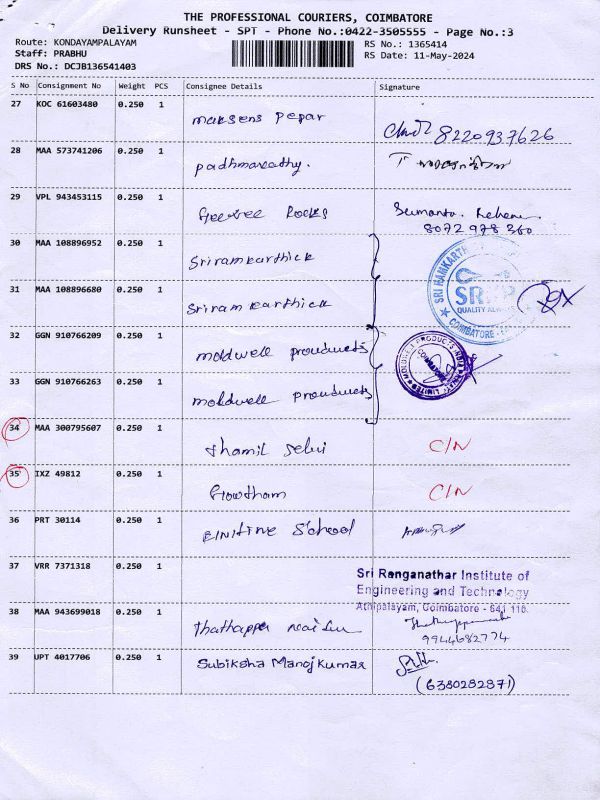 THE PROFESSIONAL COURIERS, COIMBATORE
Delivery Runsheet - SPT - Phone No.:0422-3505555 - Page No.:3
Route: KONDAYAMPALAYAM RS No.: 1365414
Staff: PRABHU RS Date: 11-May-2024
DRS No.: DCJB136541403
S No Consignment No Weight PCS Consignee Details Signature
27 KOC 61603480 0.250 1 maksens pepar 8220937626
28 MAA 573741206 0.250 1 padhmavathy.
29 VPL 943453115 0.250 1 Rocks Sumanta.
8072978360
30 MAA 108896952 0.250 1 Sriramkarthick
31 MAA 108896680 0.250 1 Sriram karthick
SRI RAMKARTH
QUALITY
COIMBATORE
32 GGN 910766209 0.250 1 moldwell prouducts
33 GGN 910766263 0.250 1 moldwell prouducts
34 MAA 300795607 0.250 1 thamil selvi C/N
35 IXZ 49812 0.250 1 Gowtham C/N
36 PRT 30114 0.250 1 School
37 VRR 7371318 0.250 1
Sri Ranganathar Institute of
Engineering and Technology
Athipalayam, Coimbatore - 641 110.
38 MAA 943699018 0.250 1 thathappa
9944682774
39 UPT 4017706 0.250 1 Subiksha Manoj Kumar
(6380282871)